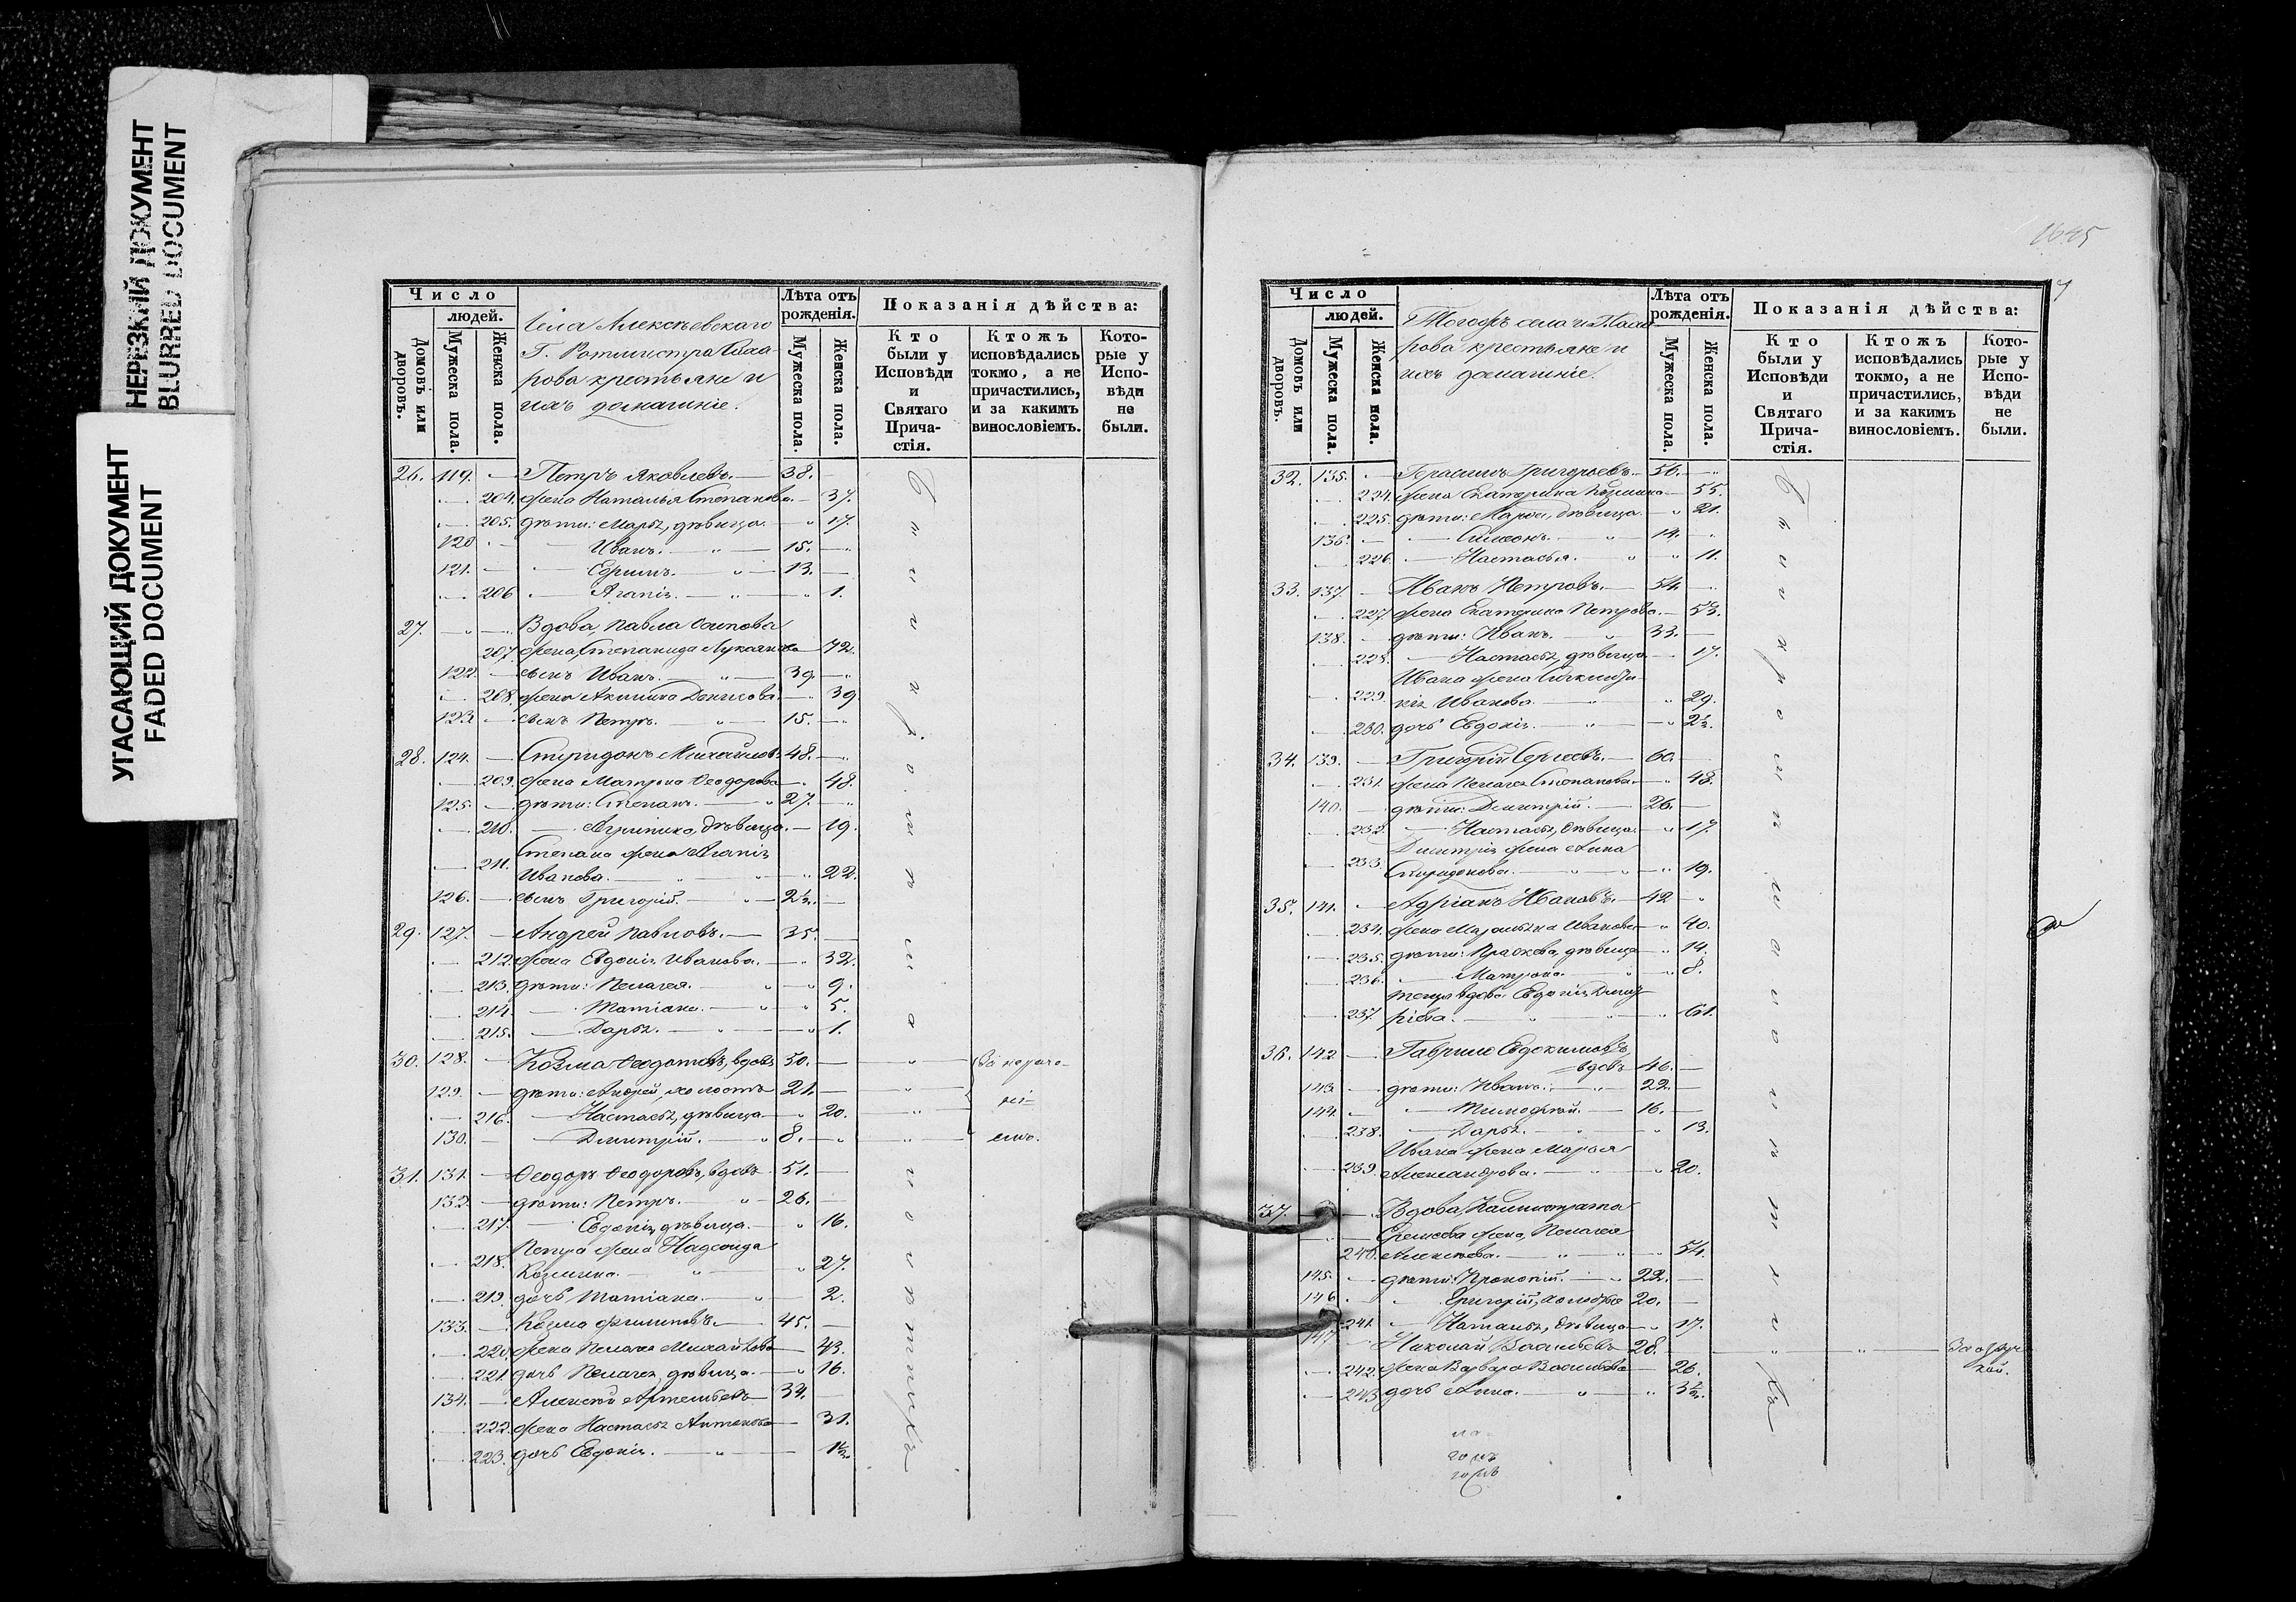 НЕРЕЗКИЙ ДОКУМЕНТ
BLURRED DOCUMENT
УГАСАЮЩИЙ ДОКУМЕНТ
FADED DOCUMENT
Число
людей.
Домовъ или дворовъ.
Мужеска пола.
Женска пола.
Села Алексѣевскаго
Г. Ротмистра
рова крестьяне и
ихъ домашніе.
Лѣта отъ рожденія.
Мужеска пола.
Женска пола.
Показанія дѣйства:
Кто были у Исповѣди и Святаго Прича- стія.
Ктожъ исповѣдались токмо, а не причастились, и за какимъ винословіемъ.
Кото- рые у Испо- вѣди не были.
26. 119. Петръ Яковлевъ. 38.
204. жена Наталья Степанова. 37.
205. дѣти: Марѳа, дѣвица. 17.
120 Иванъ. 15.
121. Ефимъ. 13.
206 Агапія. 1.
27. Вдова, Павла Осипова
207. жена Степанида Лукьянова 72.
122. сынъ Иванъ. 39.
208. жена Акилина Денисова. 39
123. сынъ Петръ. 15.
28. 124. Спиридонъ Михайловъ 48.
209. жена Матрона Ѳеодорова 48.
125. дѣти: Степанъ. 27.
210. Агрипина, дѣвица. 19.
211. Степана жена Агапія
Иванова. 22.
126. сынъ Григорій. 2½.
29. 127. Андрей Павловъ. 35.
212. жена Евдокія Иванова. 32.
213. дѣти: Пелагея. 9.
214. Татіана. 5.
215. Дарья. 1.
30. 128. Козма Ѳедотовъ, вдовъ 50.
129. дѣти: Андрей, холостъ 21.
216. Настасья, дѣвица 20.
130. Дмитрій. 8.
31. 131. Ѳеодоръ Ѳеодоровъ, вдовъ 51.
132. дѣти: Петръ. 26.
217. Евдокія, дѣвица. 16.
218. Петра жена
Козмина. 27.
219. дочь Татіана. 2.
133. Козма Филиповъ. 45.
220. жена Пелагея Михайлова 43.
221. дочь Пелагея, дѣвица. 16.
134. Алексѣй Артемьевъ 32.
222. жена Настасья Антонова 31.
223. дочь Евдокія. 1½.
1645
Число
людей.
Домовъ или дворовъ.
Мужеска пола.
Женска пола.
Тогожъ села и
рова крестьяне и
ихъ домашніе.
Лѣта отъ рожденія.
Мужеска пола.
Женска пола.
Показанія дѣйства:
Кто были у Исповѣди и Святаго Прича- стія.
Ктожъ исповѣдались токмо, а не причастились, и за какимъ винословіемъ.
Кото- рые у Испо- вѣди не были.
32. 135. Герасимъ Григорьевъ. 56.
224. жена Екатерина Козмина 55.
225. дѣти: Марѳа, дѣвица. 21.
136. Симеонъ. 14.
226. Настасья. 11.
33. 137. Иванъ Петровъ. 54
227. жена Екатерина Петрова. 53.
138. дѣти: Иванъ. 33.
228. Настасья, дѣвица 17.
Ивана жена
229. Иванова. 29.
230. дочь Евдокія. 2½.
34. 139. Григорій Сергѣевъ. 60.
231. жена Пелагея Степанова. 48.
140. дѣти: Дмитрій. 26.
232. Настасья, дѣвица. 17.
233. Дмитрія жена Анна
Спиридонова. 19.
35. 141. Адріанъ Ивановъ. 42
234. жена Марѳа Иванова 40.
235. дѣти: Прасковья, дѣвица 14.
236. Матрона. 8.
теща вдова Евдокія Дмит-
237. ріева. 61.
36. 142 Гаврило Евдокимовъ,
вдовъ 46.
143 дѣти: Иванъ. 22.
144. Тимоѳей. 16.
238. Дарья. 13.
Ивана жена Марья
239. Александрова. 20.
37. Вдова, Калистрата
жена, Пелагея
240. Алексѣева. 54.
145. дѣти: Прокопій. 22.
146 Григорій, 20.
241. Наталья, дѣвица 17.
147 Николай Васильевъ 28.
242. жена Варвара Васильева 26.
243 дочь Анна. 3½.